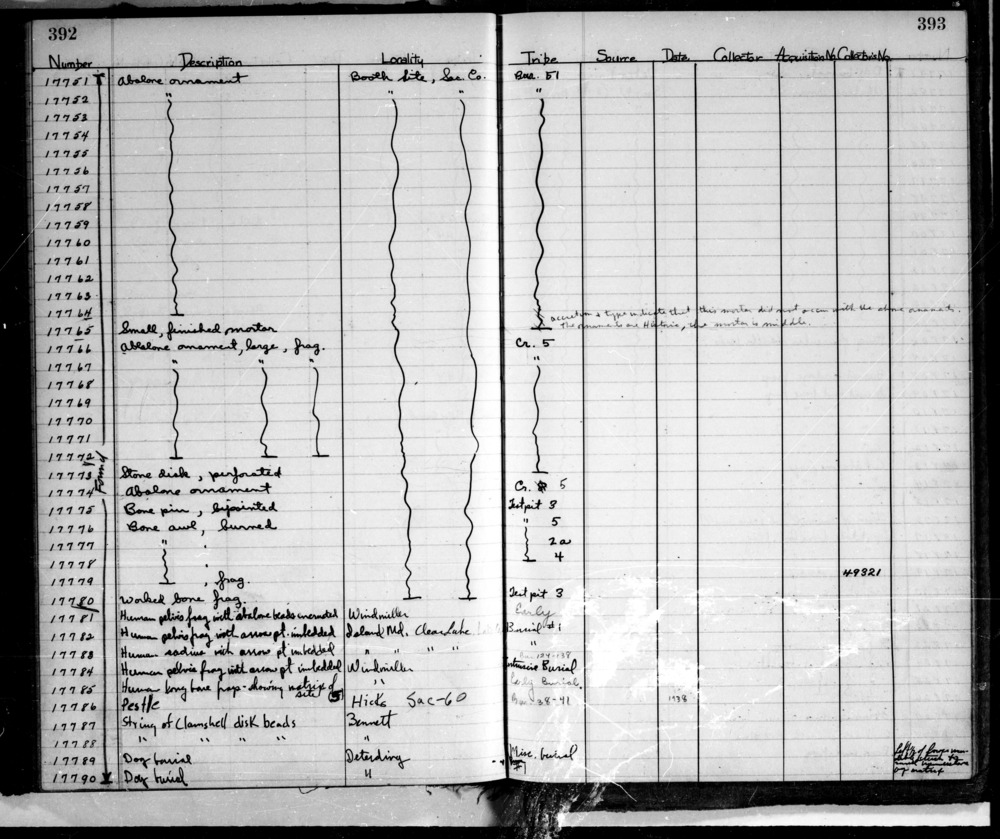 392
393
Number Description Locality Tribe Source Date Collector Acquisition No. Collector's No.
17751 Abalone ornament Booth Site, Sac. Co. Bur. 51
17752 " " " "
17753
17754
17755
17756
17757
17758
17759
17760
17761
17762
17763
17764
accretion & type indicate that this mortar did not occur with the above
17765 Small, finished mortar
The ornaments are Historic, the mortar is middle.
17766 Abalone ornament, large, frag. Cr. 5
17767 " " " "
17768
17769
17770
17771
17772
Found
17773 Stone disk, perforated
17774 Abalone ornament Cr. 5
17775 Bone pin, bipointed Test pit 3
17776 Bone awl, burned " 5
17777 " 2a
17778 4
17779 , frag. 49321
17780 Worked bone frag. Test pit 3
17781 Human pelvis frag with abalone beads Windmiller Early
17782 Human pelvis frag with arrow pt. imbedded Island Md. Clear Lake Burial #1
17783 Human sacrum with arrow pt imbedded " " " " "
17784 Human pelvis frag with arrow pt imbedded Windmiller Intrusive Burial
17785 Human long bone frags - showing matrix of site " Early Burial
17786 Pestle Hicks Sac-60 38-41 1938
17787 String of Clamshell disk beads Bennett
17788 " " " " "
17789 Dog burial Deterding Misc. burial
17790 Dog burial "